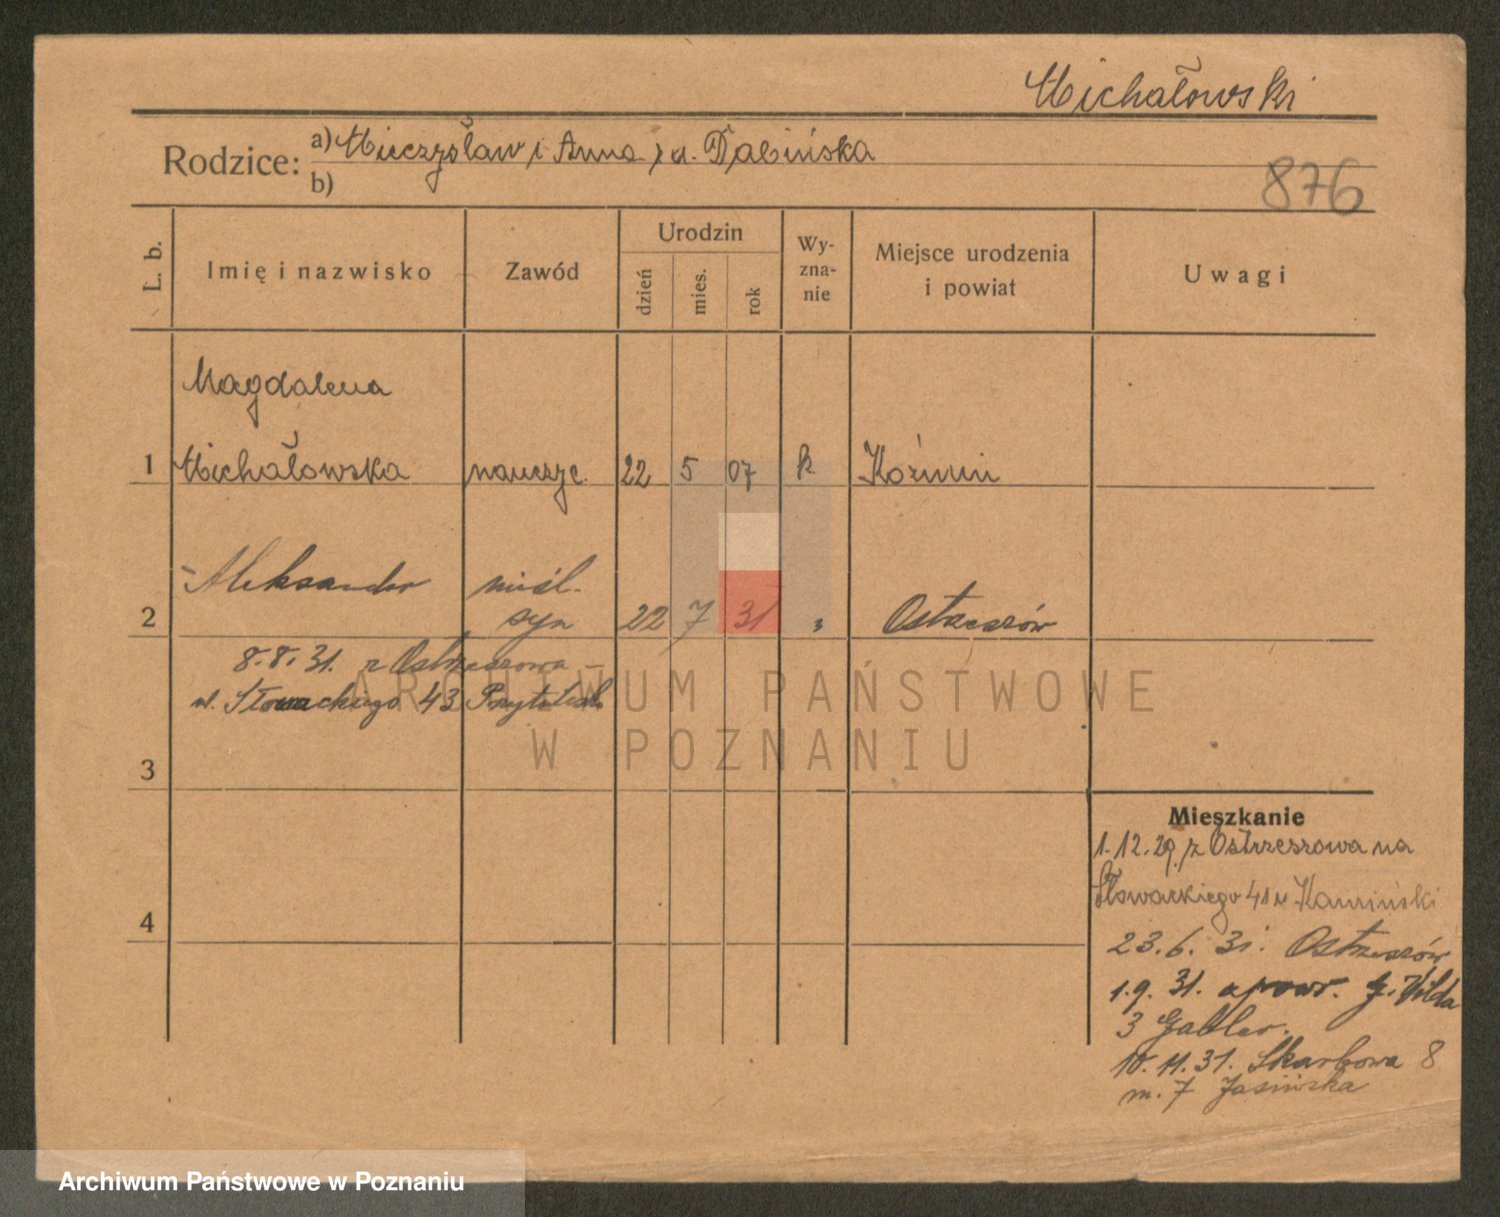 Michałowski
Rodzice: a) Mieczysław i Anna z d. Dabińska
b)
876
L. b. Imię i nazwisko Zawód Urodzin dzień mies. rok Wy-zna-nie Miejsce urodzenia i powiat Uwagi
Magdalena
1 Michałowska nauczyc. 22 5 07 k. Koźmin
Aleksander nieśl.
2 syn 22 7 31 " Ostrzeszów
8.8.31. z Ostrzeszowa –
ul. Słowackiego 43
3
4
Mieszkanie
1.12.29. z Ostrzeszowa na
Słowackiego 41 u Kamiński
23.6.31. Ostrzeszów
1.9.31. a powr. G. Wilda
3 Gabler.
10.11.31. Skarbowa 8
m. 7 Jasińska
ARCHIWUM PAŃSTWOWE
W POZNANIU
Archiwum Państwowe w Poznaniu